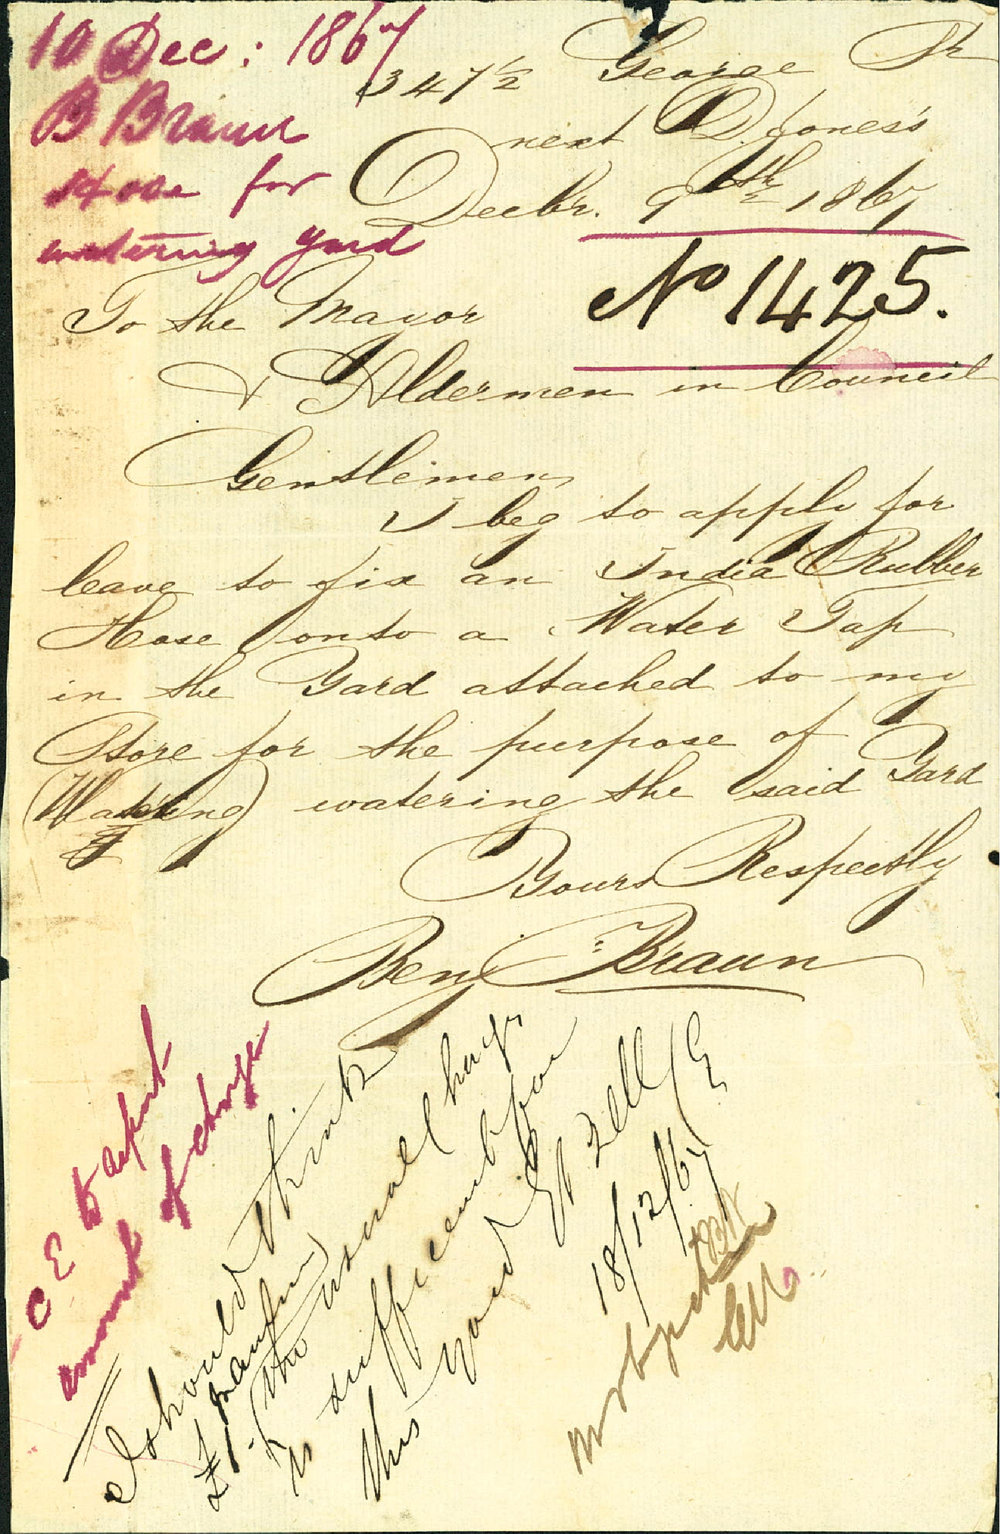 10 Dec: 1867
B Braun
Hose for
watering yard
347½ George St
next D Jones's
Decbr. 9th 1867
No 1425.
To the Mayor
& Aldermen in Council
Gentlemen
I beg to apply for
leave to fix an India Rubber
Hose onto a Water Tap
in the Yard attached to my
Store for the purpose of
(Watering) watering the said Yard
Yours Respectly
Benj Braun
C E to report
amount of charge
I should think
£1 - per annum
(the usual charge)
is sufficient for
this yard
Ed Bell CE
18/12/67